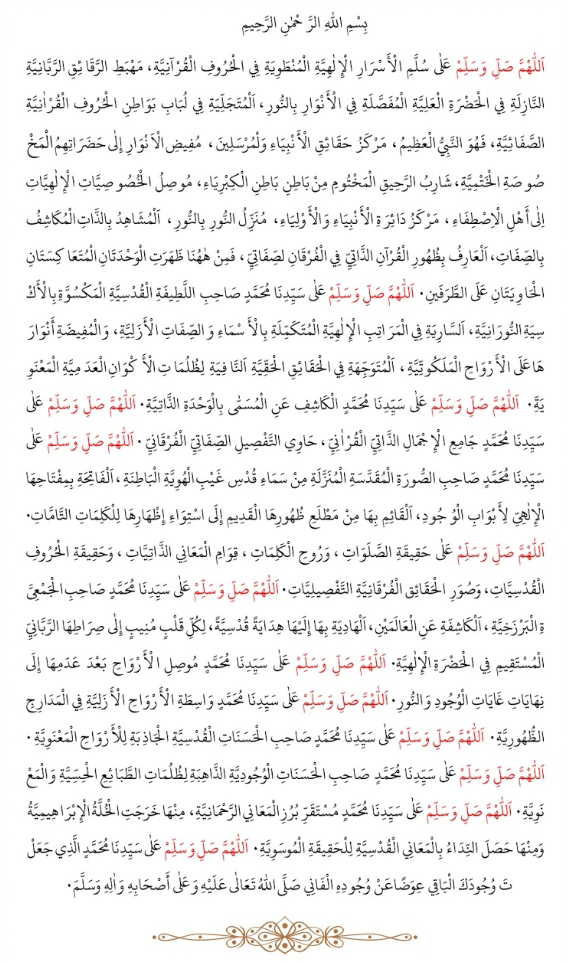 بِسْمِ اللهِ الرَّ حْمٰنِ الرَّحِيمِ
اَللّٰهُمَّ صَلِّ وَسَلِّمْ عَلٰى سُلَّمِ الْأَسْرَارِ الْإِلٰهِيَّةِ الْمُنْطَوِيَةِ فِي الْحُرُوفِ الْقُرْآنِيَّةِ، مَهْبَطِ الرَّقَائِقِ الرَّبَّانِيَّةِ
النَّازِلَةِ فِي الْحَضْرَةِ الْعَلِيَّةِ الْمُفَصَّلَةِ فِي الْأَنْوَارِ بِالنُّورِ، اَلْمُتَجَلِّيَةِ فِي لُبَابِ بَوَاطِنِ الْحُرُوفِ الْقُرْاٰنِيَّةِ
الصِّفَاتِيَّةِ، فَهُوَ النَّبِيُّ الْعَظِيمُ، مَرْكَزُ حَقَائِقِ الْأَنْبِيَاءِ وَلْمُرْسَلِينَ، مُفِيضِ الْاَنْوَارِ إِلٰى حَضَرَاتِهِمُ الْمَخْ
صُو صَةِ الْخَتْمِيَّةِ، شَارِبُ الرَّحِيقِ الْمَخْتُومِ مِنْ بَاطِنِ بَاطِنِ الْكِبْرِيَاءِ، مُوصِلُ الْخُصُوصِيَّاتِ الْإِلٰهِيَّاتِ
اِلٰى أَهْلِ الْاِصْطِفَاءِ، مَرْكَزُ دَائِرَةِ الْأَنْبِيَاءِ وَالْأَوْلِيَاءِ، مُنَزِّلُ النُّورِ بِالنُّورِ، اَلْمُشَاهِدُ بِالذَّاتِ الْمُكَاشِفُ
بِالصِّفَاتِ، اَلْعَارِفُ بِظُهُورِ الْقُرْآنِ الذَّاتِيِّ فِي الْفُرْقَانِ لصِفَاتِيِّ، فَمِنْ هٰهُنَا ظَهَرَتِ الْوَحْدَتَانِ الْمُتَعَا كِسَتَانِ
الْحَاوِيَتَانِ عَلَى الطَّرَفَيْنِ. اَللّٰهُمَّ صَلِّ وَسَلِّمْ عَلٰى سَيِّدِنَا مُحَمَّدٍ صَاحِبِ اللَّطِيفَةِ الْقُدْسِيَّةِ الْمَكْسُوَّةِ بِالْأَكْ
سِيَةِ النُّورَانِيَّةِ، اَلسَّارِيَةِ فِي الْمَرَاتِبِ الْإِلٰهِيَّةِ الْمُتَكَمِّلَةِ بِالْأَسْمَاءِ وَ الصِّفَاتِ الْأَزَلِيَّةِ، وَالْمُفِيضَةِ أَنْوَارَ
هَاعَلَى الْأَرْوَاحِ الْمَلَكُوتِيَّةِ، اَلْمُتَوَجِّهَةِ فِي الْحَقَائِقِ الْحَقِّيَّةِ اَلنَّافِيَةِ لِظُلُمَا تِ الْأَ كْوَانِ الْعَدَ مِيَّةِ الْمَعْنَوِ
يَةً. اَللّٰهُمَّ صَلِّ وَسَلِّمْ عَلٰى سَيِّدِنَا مُحَمَّدٍ الْكَاشِفِ عَنِ الْمُسَمّٰى بِالْوَحْدَةِ الذَّاتِيَّةِ. اَللّٰهُمَّ صَلِّ وَسَلِّمْ عَلٰى
سَيِّدِنَا مُحَمَّدٍ جَامِعِ الْإِجْمَالِ الذَّاتِيِّ الْقُرْاٰنِيِّ، حَاوِي التَّفْصِيلِ الصِّفَاتِيِّ الْفُرْقَانِيِّ. اَللّٰهُمَّ صَلِّ وَسَلِّمْ عَلٰى
سَيِّدِنَا مُحَمَّدٍ صَاحِبِ الصُّورَةِ الْمُقَدَّسَةِ الْمُنَزَّلَةِ مِنْ سَمَاءِ قُدْسِ غَيْبِ الْهُوِيَّةِ الْبَاطِنَةِ، اَلْفَاتِحَةِ بِمِفْتَاحِهَا
الْإِلٰهِيِّ لِأَبْوَابِ الْوُ جُودِ، اَلْقَائِمِ بِهَا مِنْ مَطْلَعِ ظُهُورِهَا الْقَدِيمِ إِلَى اسْتِوَاءِ إِظْهَارِهَا لِلْكَلِمَاتِ التَّامَّاتِ.
اَللّٰهُمَّ صَلِّ وَسَلِّمْ عَلٰى حَقِيقَةِ الصَّلَوَاتِ، وَرُوحِ الْكَلِمَاتِ، قِوَامِ الْمَعَانِي الذَّاتِيَّاتِ، وَحَقِيقَةِ الْحُرُوفِ
الْقُدْسِيَّاتِ، وَصُوَرِ الْحَقَائِقِ الْفُرْقَانِيَّةِ التَّفْصِيلِيَّاتِ. اَللّٰهُمَّ صَلِّ وَسَلِّمْ عَلٰى سَيِّدِنَا مُحَمَّدٍ صَاحِبِ الْجَمْعِيَّ
ةِ الْبَرْزَخِيَّةِ، اَلْكَاشِفَةِ عَنِ الْعَالَمَيْنِ، اَلْهَادِيَةِ بِهَا إِلَيْهَا هِدَايَةً قُدْسِيَّةً، لِكُلِّ قَلْبٍ مُنِيبٍ إِلٰى صِرَاطِهَا الرَّبَّانِيِّ
الْمُسْتَقِيمِ فِي الْحَضْرَةِ الْإِلٰهِيَّةِ. اَللّٰهُمَّ صَلِّ وَسَلِّمْ عَلٰى سَيِّدِنَا مُحَمَّدٍ مُوصِلِ الْأَرْوَاحِ بَعْدَ عَدَمِهَا إِلٰى
نِهَايَاتِ غَايَاتِ الْوُجُودِ وَالنُّورِ. اَللّٰهُمَّ صَلِّ وَسَلِّمْ عَلٰى سَيِّدِنَا مُحَمَّدٍ وَاسِطَةِ الْأَرْوَاحِ الْأَزَلِيَّةِ فِي الْمَدَارِجِ
الظُّهُورِيَّةِ. اَللّٰهُمَّ صَلِّ وَسَلِّمْ عَلٰى سَيِّدِنَا مُحَمَّدٍ صَاحِبِ الْحَسَنَاتِ الْقُدْسِيَّةِ الْجَاذِبَةِ لِلْأَرْوَاحِ الْمَعْنَوِيَّةِ.
اَللّٰهُمَّ صَلِّ وَسَلِّمْ عَلٰى سَيِّدِنَا مُحَمَّدٍ صَاحِبِ الْحَسَنَاتِ الْوُجُودِيَّةِ الذَّاهِبَةِ لِظُلُمَاتِ الطَّبَائِعِ الْحِسِّيَّةِ وَالْمَعْ
نَوِيَّةِ. اَللّٰهُمَّ صَلِّ وَسَلِّمْ عَلٰى سَيِّدِنَا مُحَمَّدٍ مُسْتَقَرِّ بُرُزِ الْمَعَانِي الرَّحْمَانِيَّةِ، مِنْهَا خَرَجَتِ الْخُلَّةُ الْإِبْرَاهِيمِيَّةُ
وَمِنْهَا حَصَلَ النِّدَاءُ بِالْمَعَانِي الْقُدْسِيَّةِ لِلْحَقِيقَةِ الْمُوسَوِيَّةِ. اَللّٰهُمَّ صَلِّ وَسَلِّمْ عَلٰى سَيِّدِنَا مُحَمَّدٍ الَّذِي جَعَلْ
تَ وُجُودَكَ الْبَاقِي عِوَضًا عَنْ وُجُودِهِ الْفَانِي صَلَّى اللهُ تَعَالٰى عَلَيْهِ وَ عَلٰى أَصْحَابِهِ وَاٰلِهِ وَسَلَّمَ.